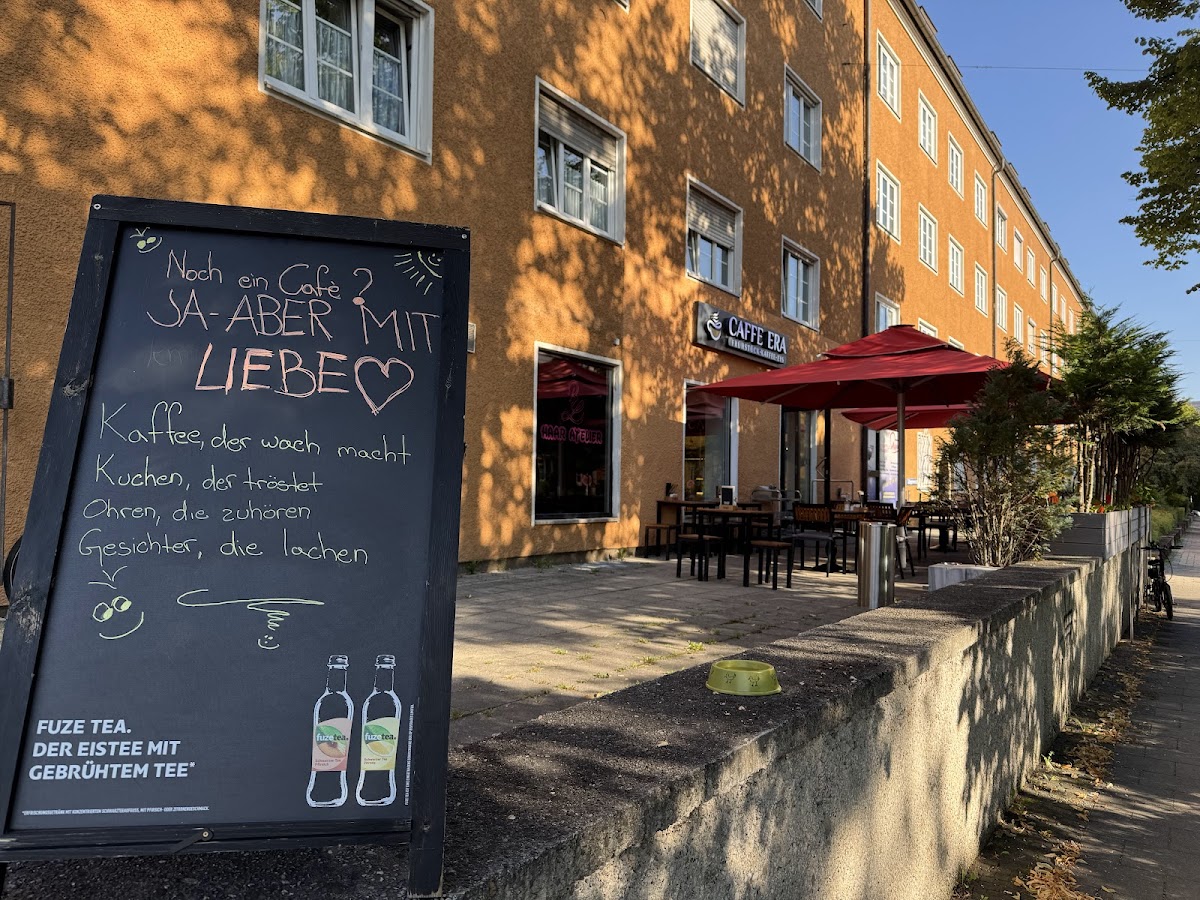 Noch ein Cafè?
JA-ABER MIT
LIEBE
Kaffee, der wach macht
Kuchen, der tröstet
Ohren, die zuhören
Gesichter, die lachen
FUZE TEA.
DER EISTEE MIT
GEBRÜHTEM TEE*
fuzetea.
fuzetea.
CAFFE ERA
HAAR ATELIER